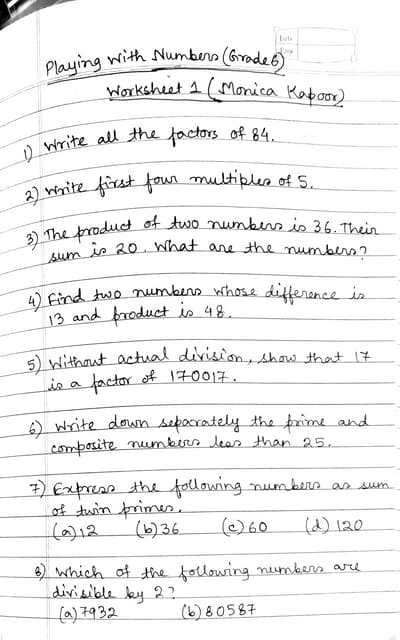 Date
Page
Playing with Numbers (Grade 6)
Worksheet 1 (Monica Kapoor)
1) Write all the factors of 84.
2) Write first four multiples of 5.
3) The product of two numbers is 36. Their
sum is 20. What are the numbers?
4) Find two numbers whose difference is
13 and product is 48.
5) Without actual division, show that 17
is a factor of 170017.
6) Write down separately the prime and
composite numbers less than 25.
7) Express the following numbers as sum
of twin primes.
(a) 12 (b) 36 (c) 60 (d) 120
8) Which of the following numbers are
divisible by 2?
(a) 7932 (b) 80587